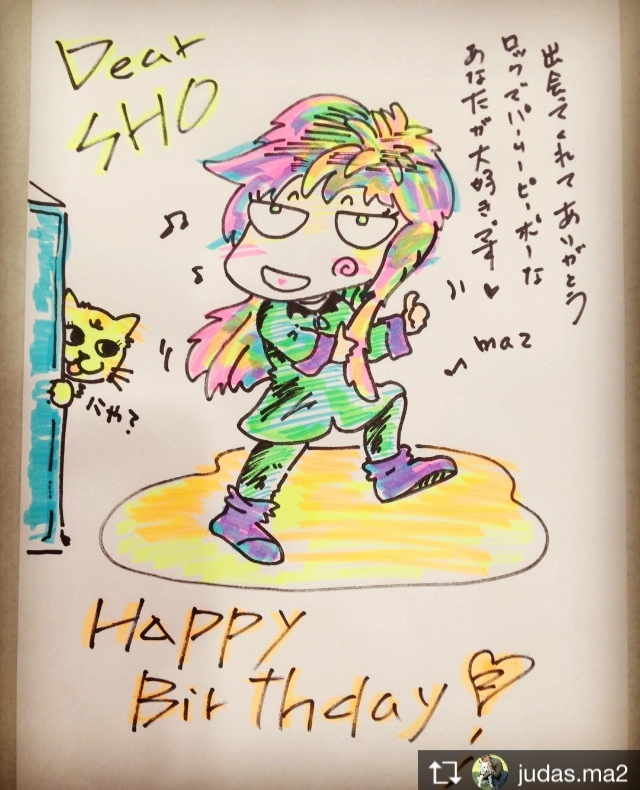 Dear
SHO
出会てくれてありがとう
ロックでパーリーピーポーな
あなたが大好きです♥
ma2
にゃ?
Happy
Birthday!
judas.ma2